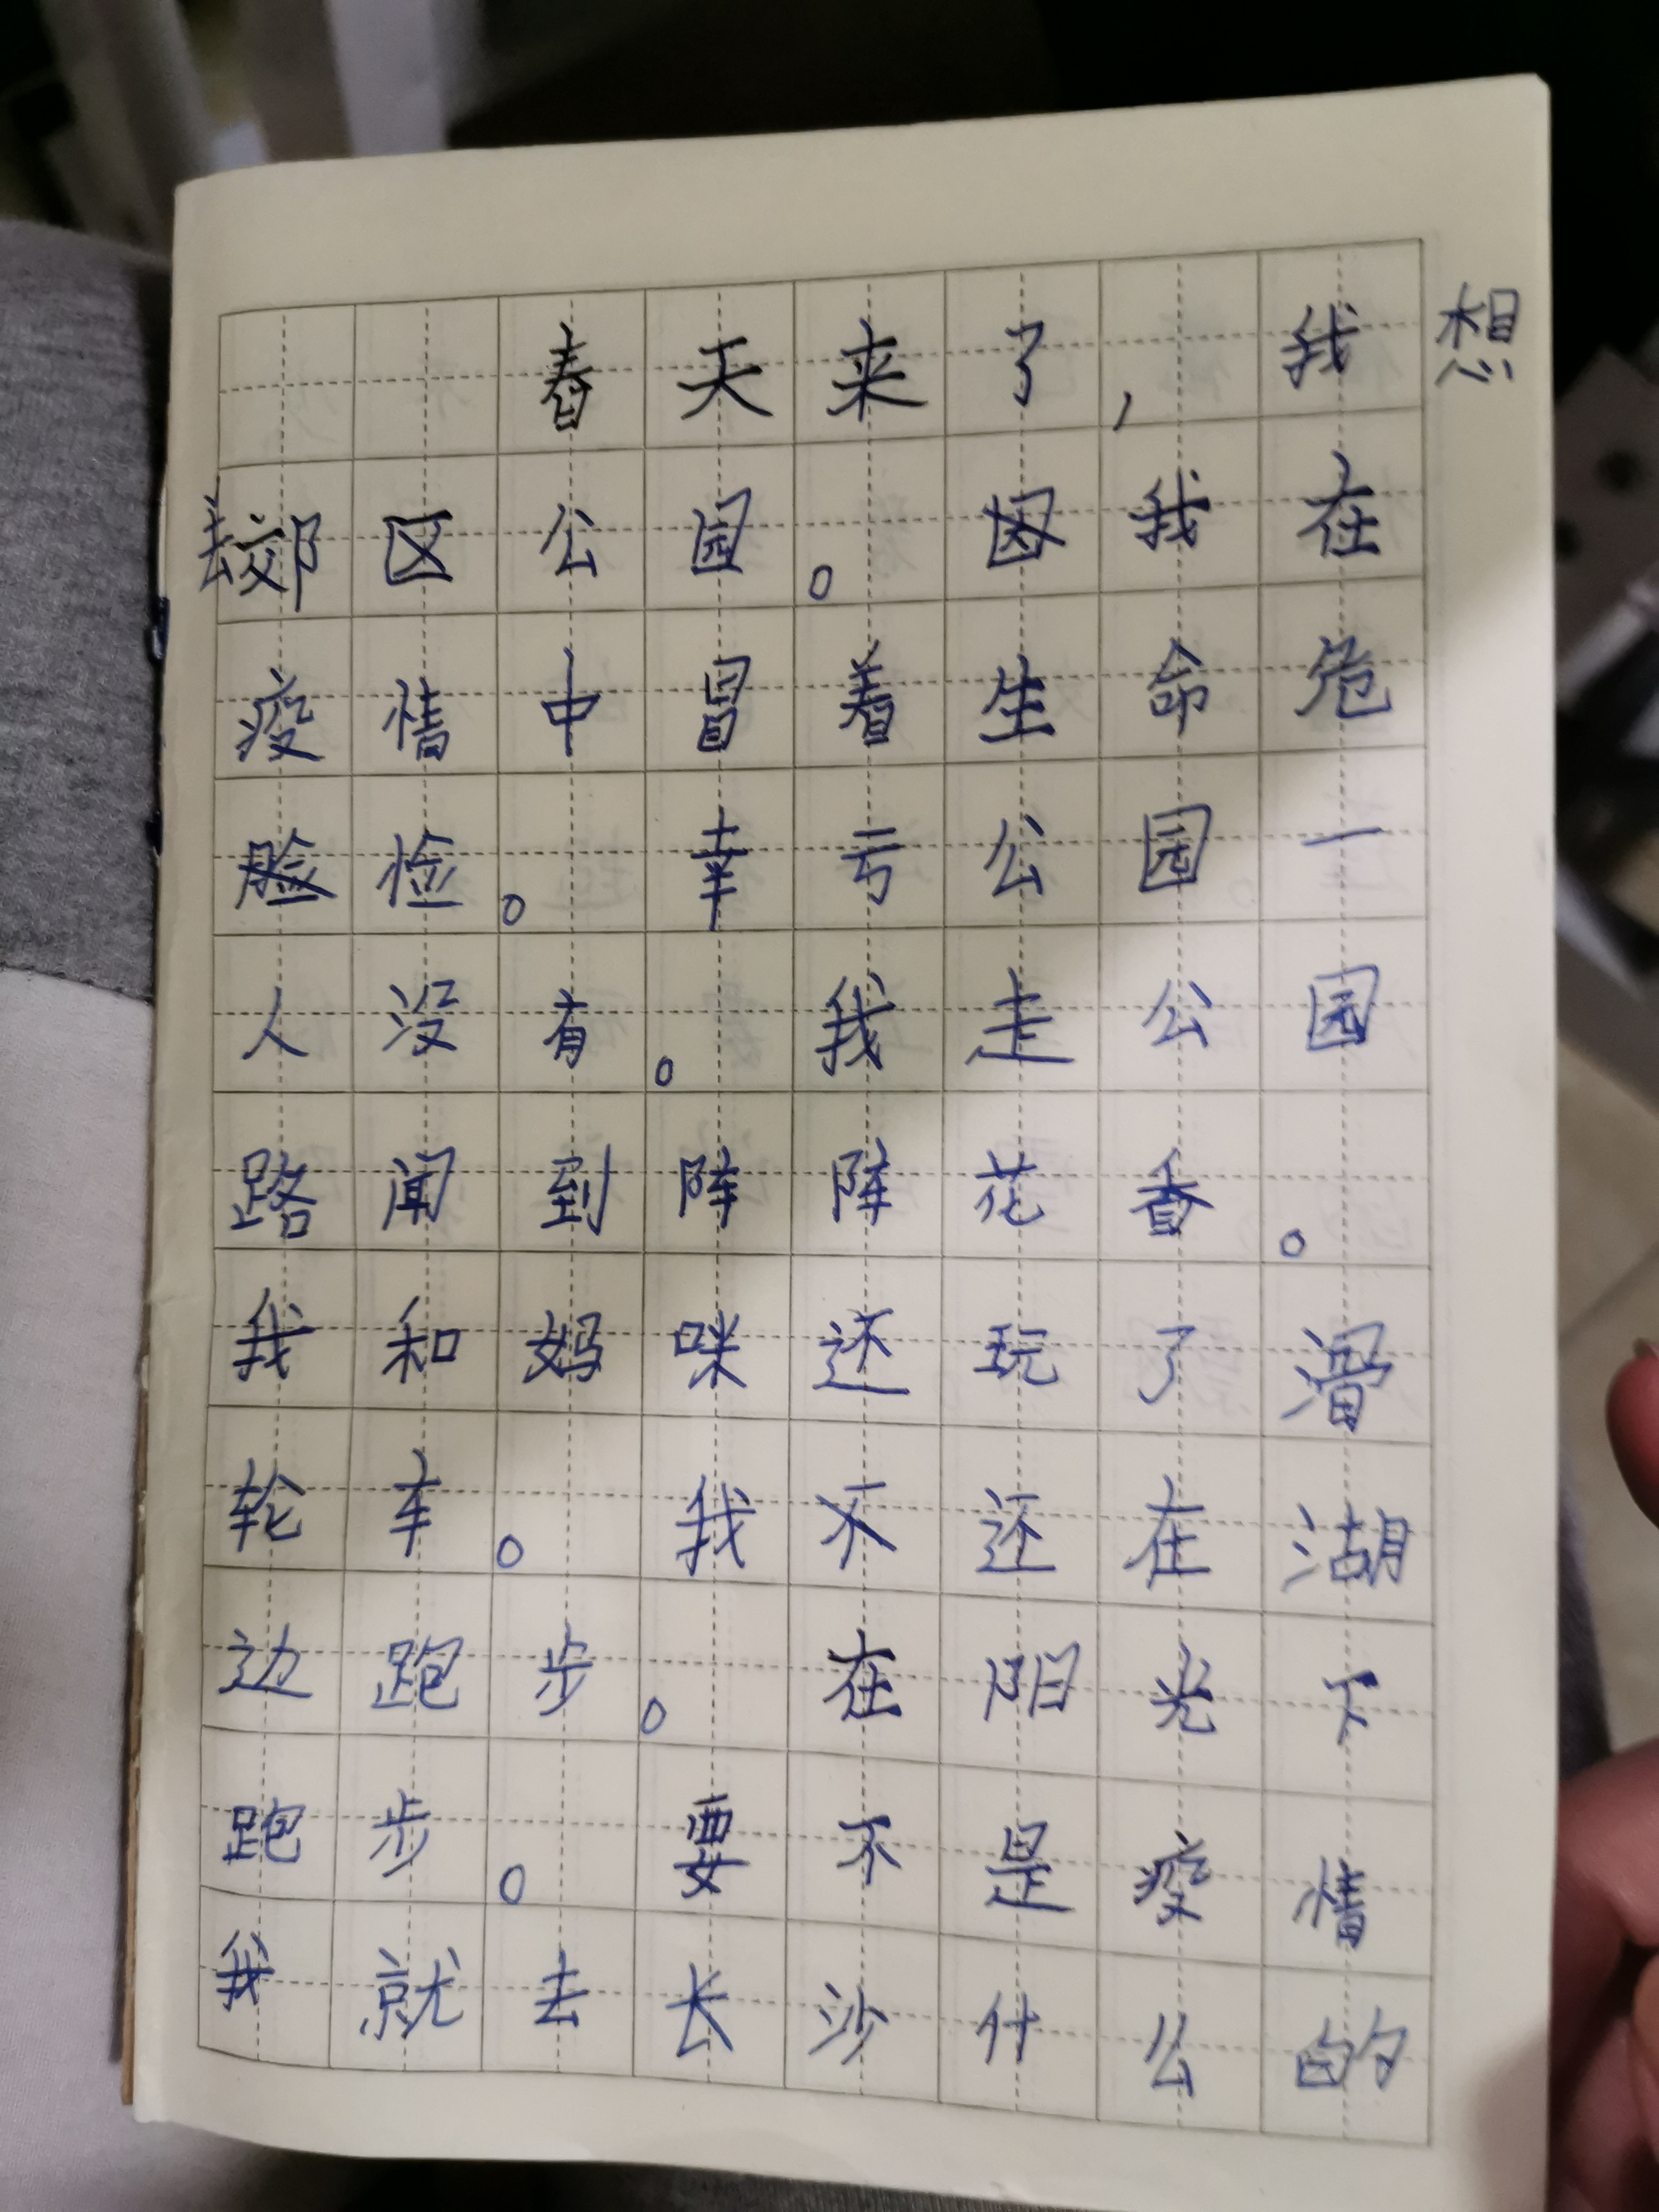 春天来了，我想
去郊区公园。因我在
疫情中冒着生命危
脸检。幸亏公园一
人没有。我走公园
路闻到阵阵花香。
我和妈咪还玩了滑
轮车。我不还在湖
边跑步。在阳光下
跑步。要不是疫情
我就去长沙什么的